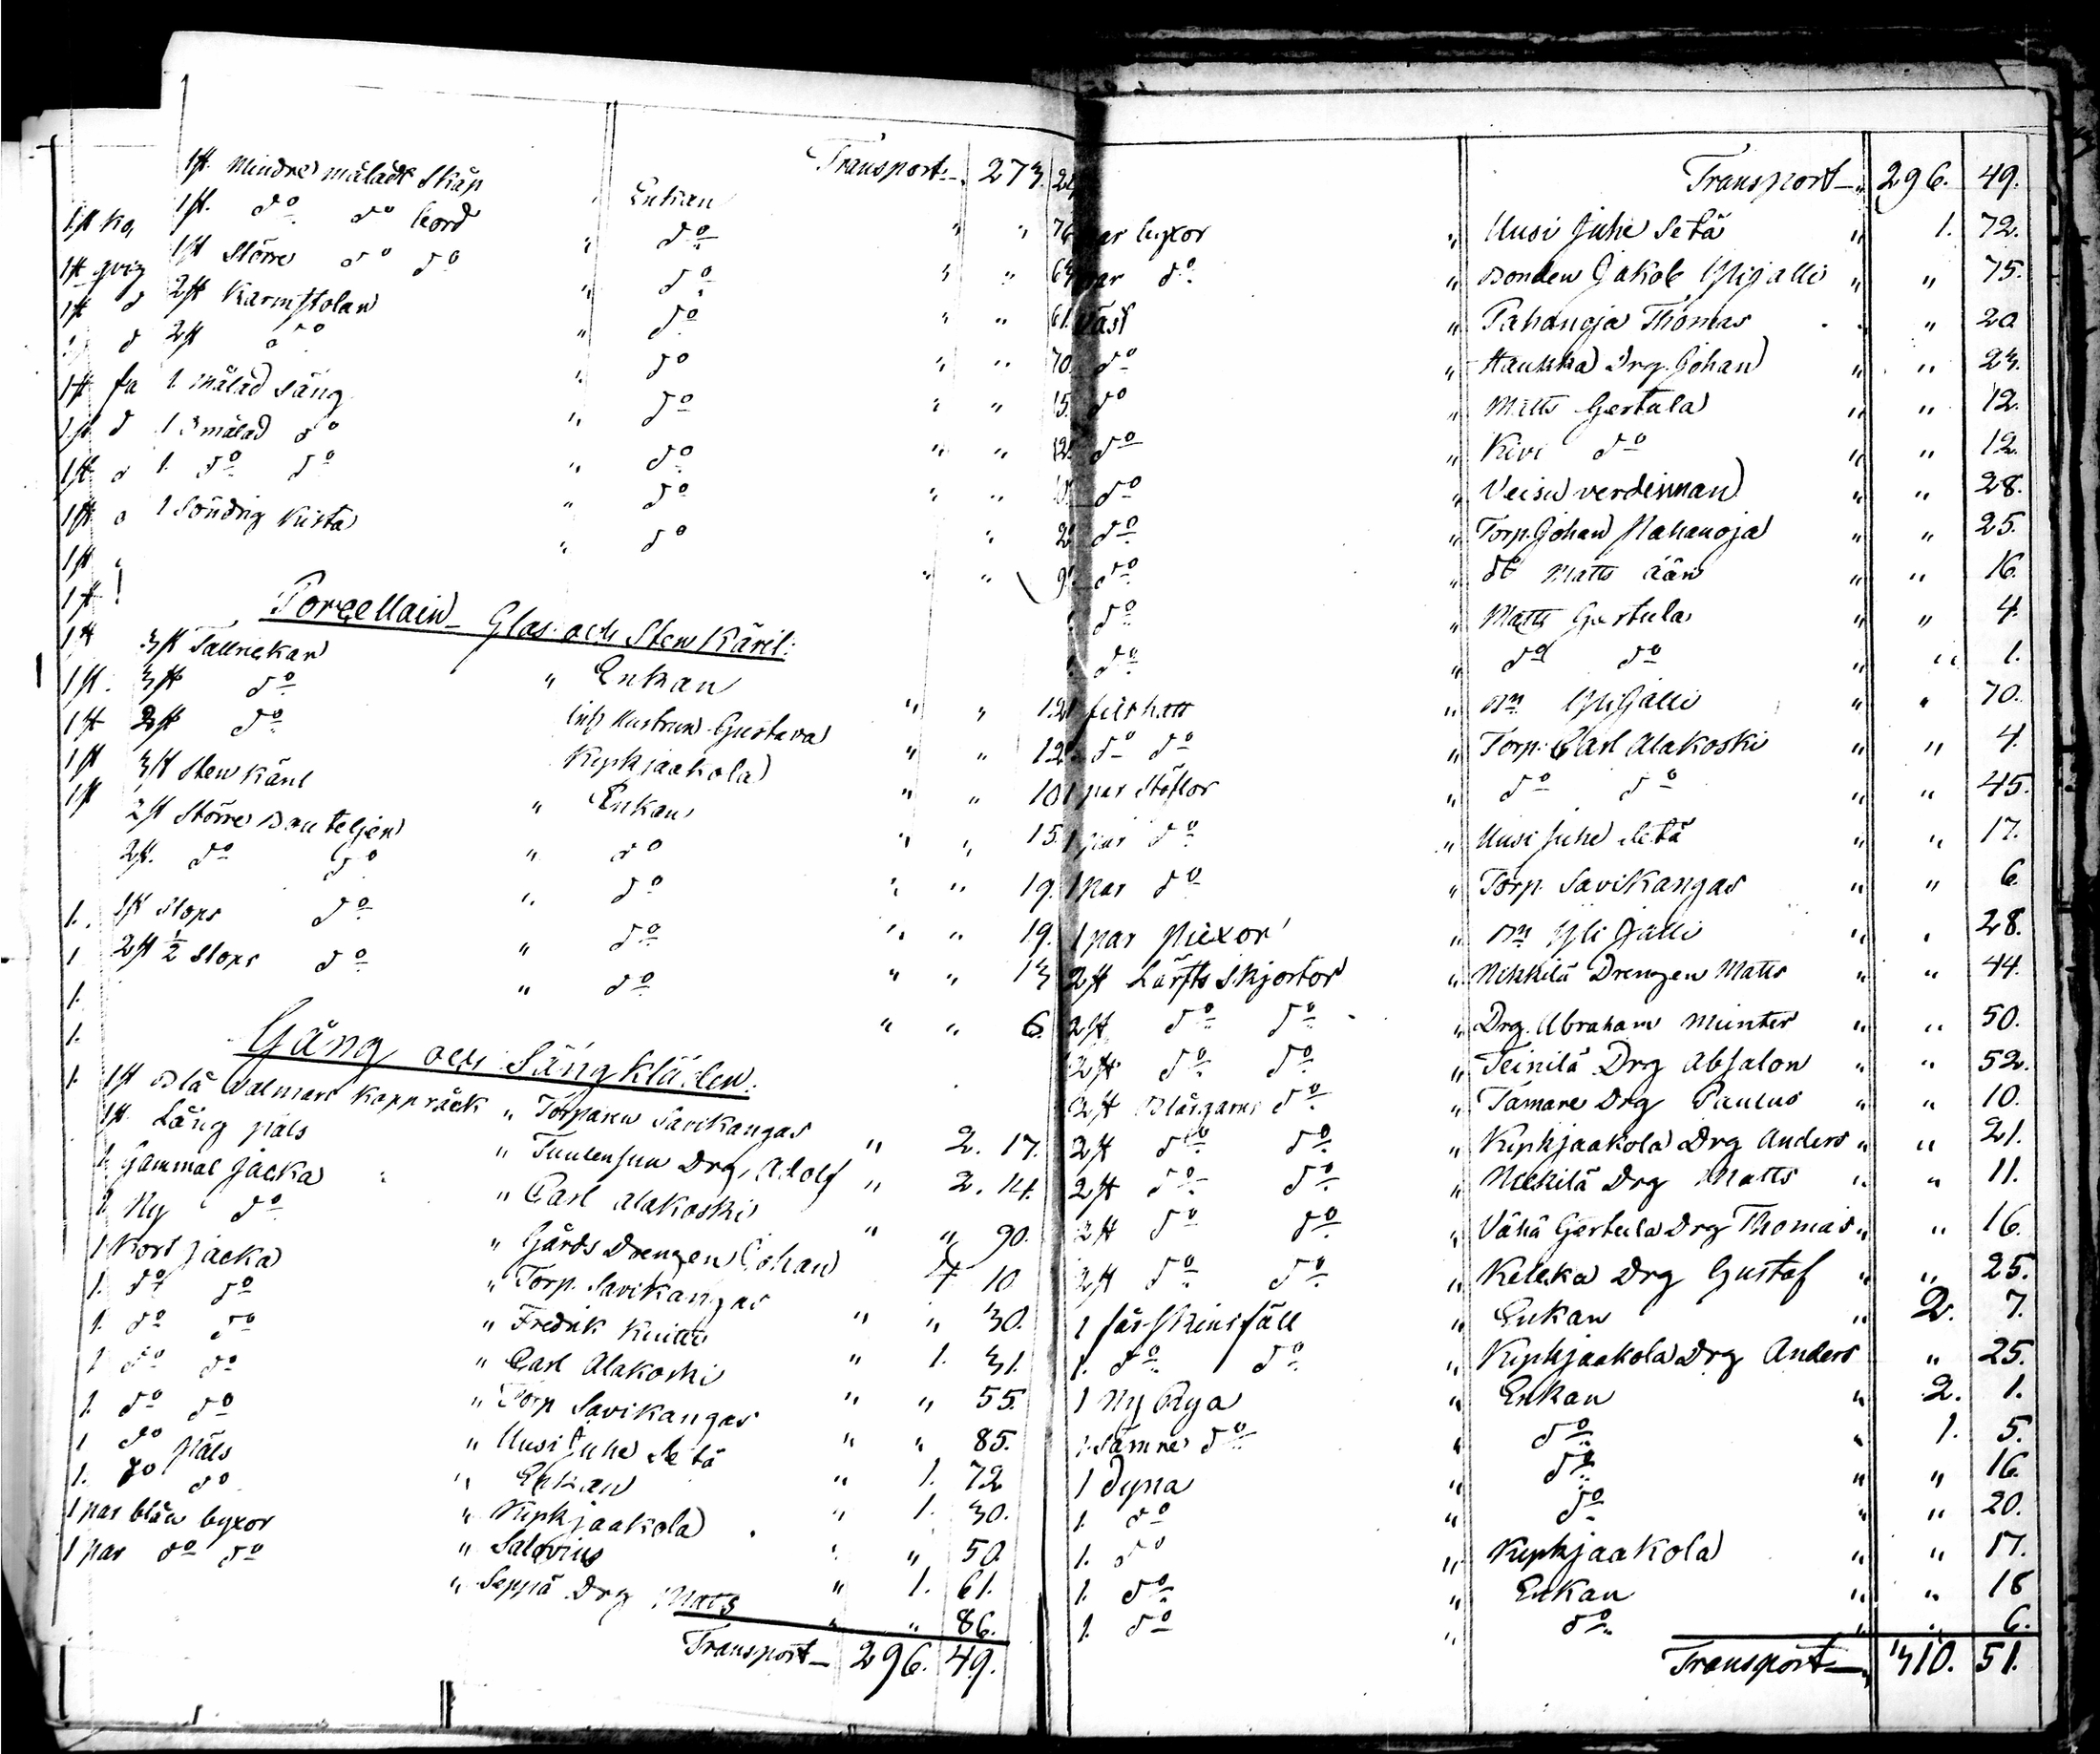 Transport 273.
1st Mindre måladt Skåp " Enkan " " 76
1st. do do bord " do " " 64
1st Större do do " do " " 61.
2st Karmstolan " do " " 70.
2st do " do " " 15.
1. målad Säng " do " " 12.
1 omålad do " do " "
1. do do " do " 2
1 Söndrig Kista " do " " 9.
Porcellain- Glas- och Sten Käril:
3st Tallrickar " Enkan " " 12
3st do Gustava " " 12
2st do Kyrkjaakola " " 10
3st Sten Käril " Enkan " " 15.
2st Större Bouteljer " do " " 19.
2st. do do " do " " 19.
1st Stops do " do " " 13
2st ½ Stops do " do " " 6.
Gång och Sängkläder.
1st Blå Walmars Kappråck " Torparen Savikangas " 2. 17.
1st. Lång päls " Drg. Adolf " 2. 14.
1. Gammal Jacka " Carl Alakoski " " 90.
1 Ny do " Gårds Drengen Johan 4 10
1 Kort jacka " Torp. Savikangas " " 30.
1. do do " Fredrik " 1. 31.
1. do do " Carl Alakoski " " 55.
1 do do " Torp Savikangas " " 85.
1. do do " Uusi Juhe Setä " 1. 72
1 do päls " Enkan " 1. 30.
1. do do " Kyrkjaakola " " 50.
1 par blåa byxor " Salovius " 1. 61.
1 par do do " Seppä Drg Mats " " 86.
Transport 296. 49.
Transport 296. 49.
par byxor " Uusi Juhe Setä " 1. 72.
par do " Bonden Jakob Yligalli " " 75.
Väst " Pahanoja Thomas " " 20.
do " Haukka Drg. Johan " " 23.
do " Matts Gertula " " 12.
do " Kivi do " " 12.
do " " " 28.
do " Torp. Johan Mahanoja " " 25.
do " do Matts " " 16.
do " Matts Gertula " " 4.
do " do do " " 1.
filthatt " Bn YliJälli " " 70.
do do " Torp. Carl Alakoski " " 4.
1 par Stöflor " do do " " 45.
1 par do " Uusi Juhe Setä " " 17.
1 par do " Torp. Savikangas " " 6.
1 par Piexor " Bn Yli Jälli " " 28.
2st Lärfts Skjortor " Nikkilä Drengen Matts " " 44.
2st do do " Drg. Abraham Munter " " 50.
2st do do " Teinilä Drg Absalon " " 52.
2st Blårgarns do " Tamare Drg Paulus " " 10.
2st do do " Kyrkjaakola Drg Anders " " 21.
2st do do " Nikkilä Drg Matts " " 11.
2st do do " Vähä Gertula Drg Thomas " " 16.
2st do do " Keleka Drg Gustaf " " 25.
1 fårskinsfäll " Enkan " 2. 7.
1. do do " Kyrkjaakola Drg Anders " 25.
1 Ny Rya " Enkan " 2. 1.
1 Sämre do " do " 1. 5.
1 Dyna " do " " 16.
1. do " do " " 20.
1. do " Kyrkjaakola " " 17.
1. do " Enkan " " 18
1. do " do " " 6.
Transport 310. 51.